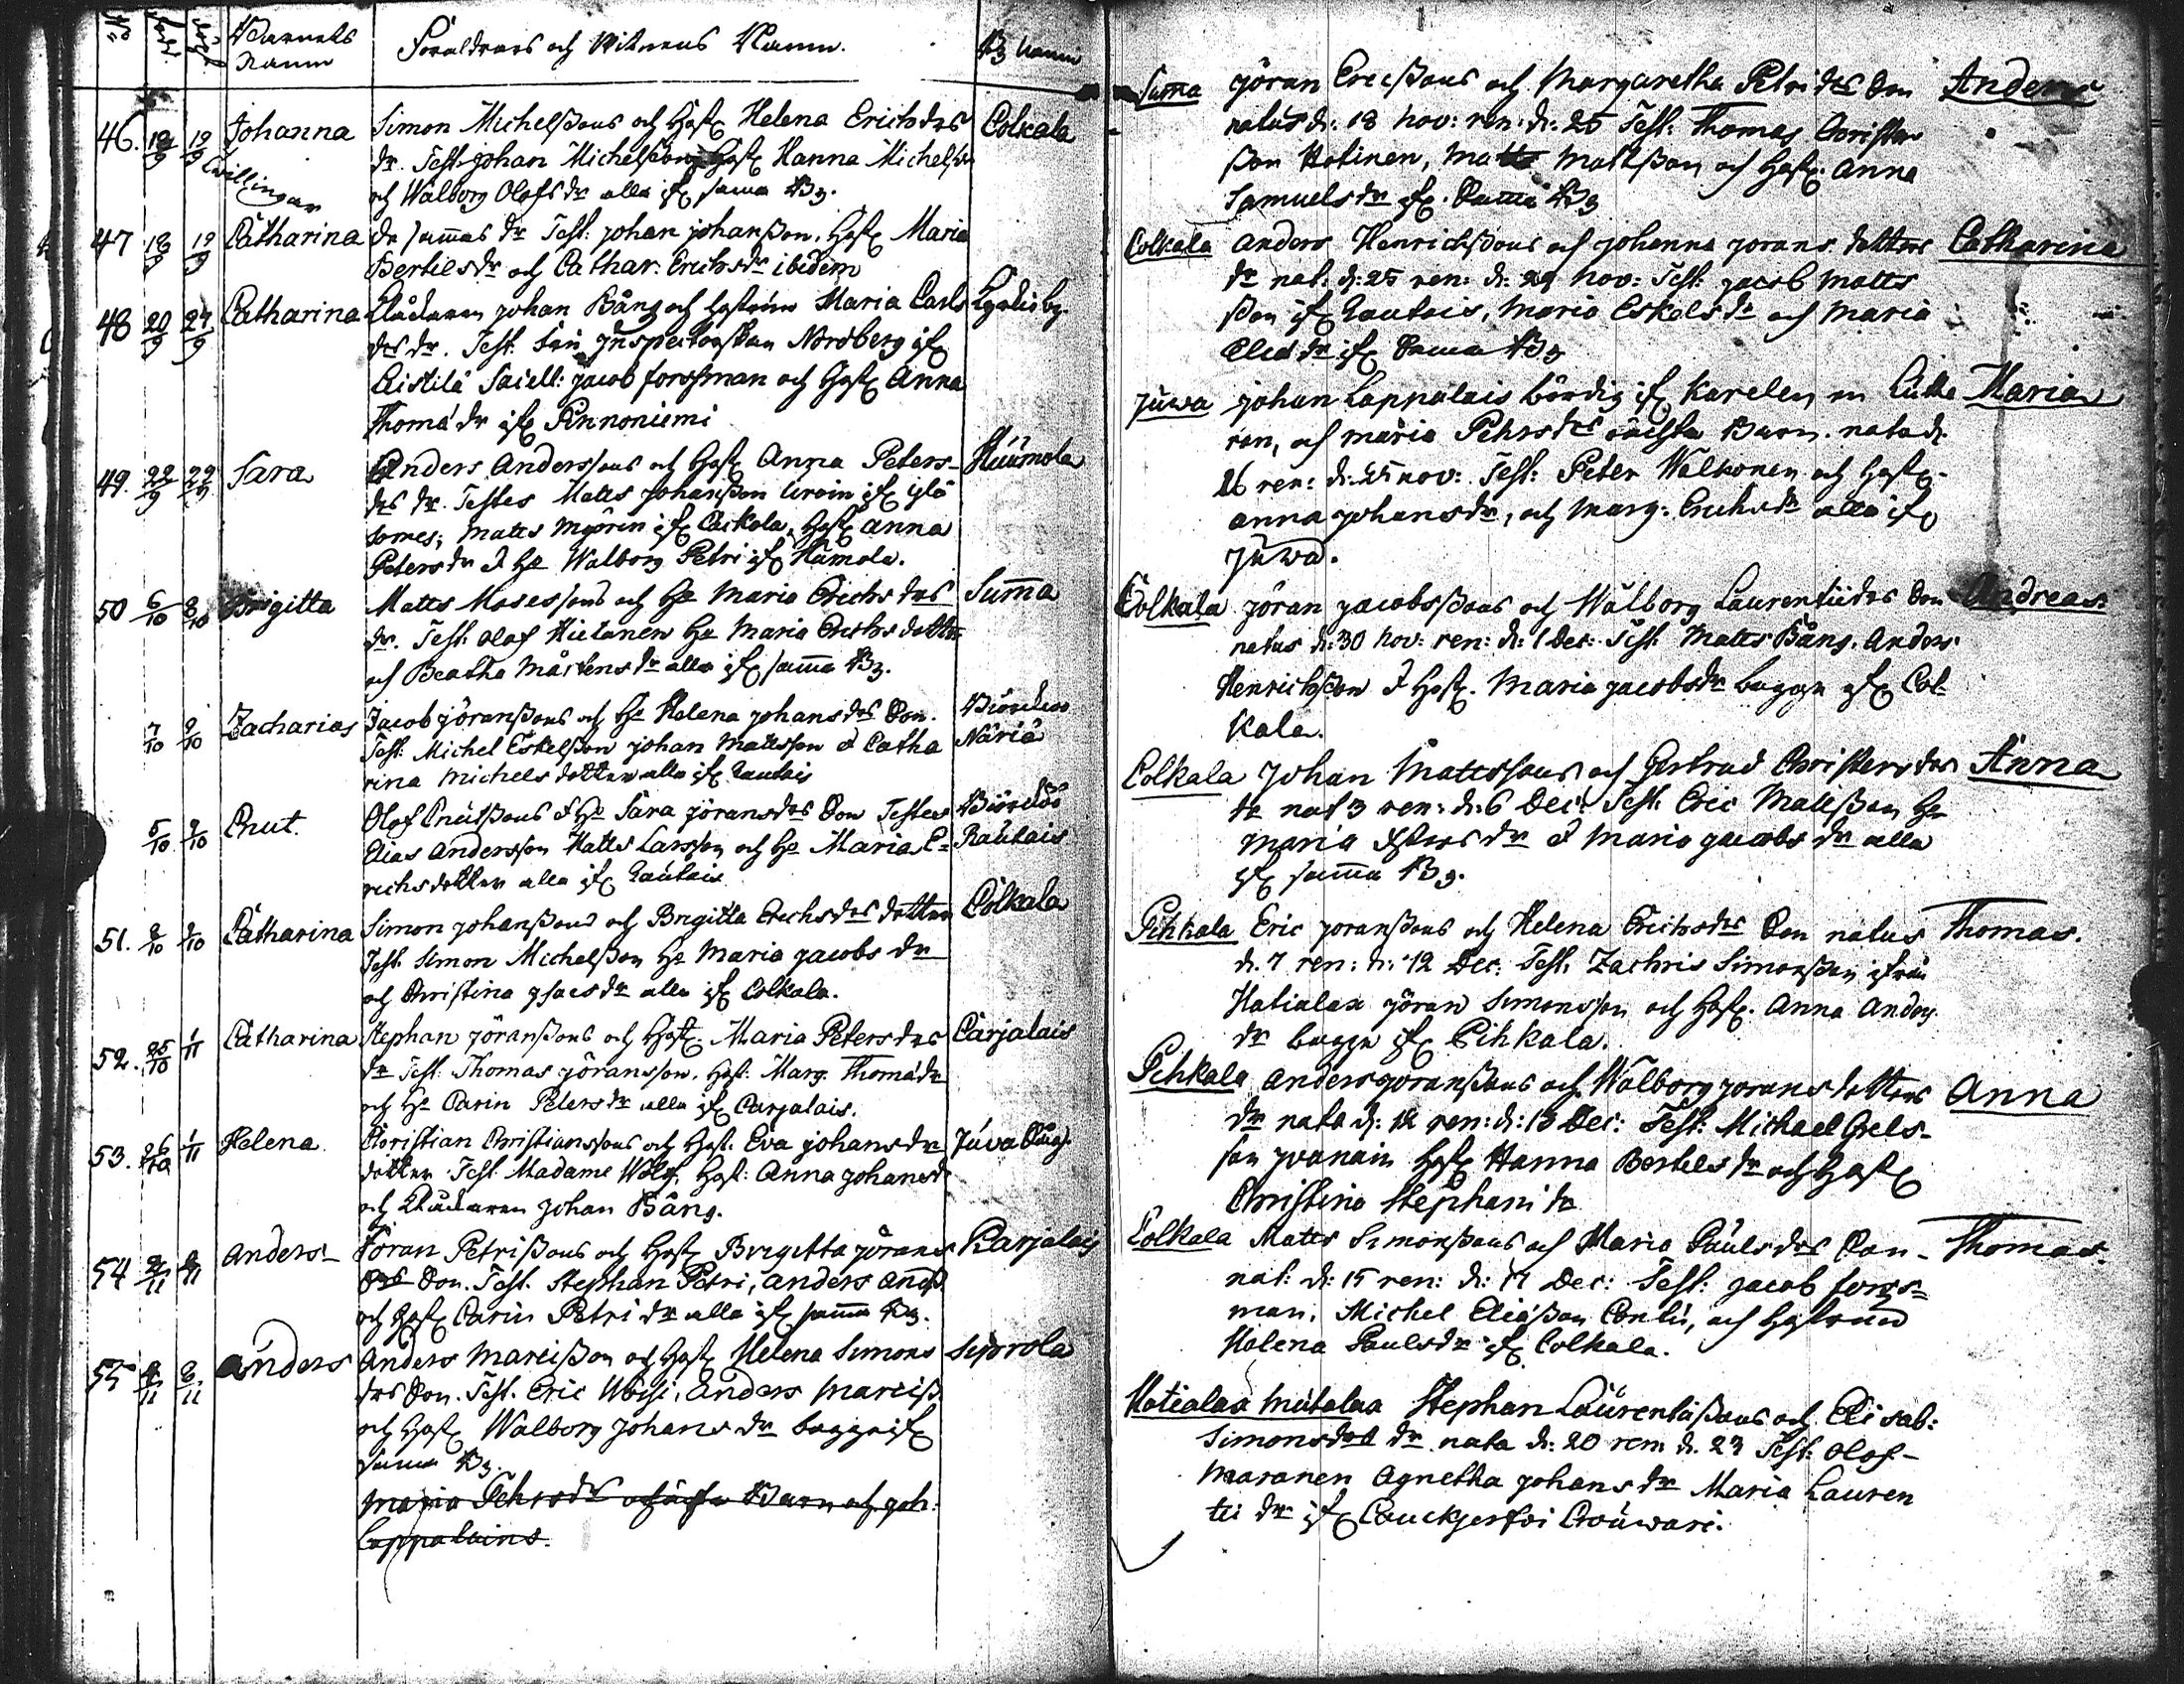 No född döpt Barnets Namn Föräldrars och Witnens Namn. By namn
46. 18/9 19/9 Johanna Simon Michelssons och Hust Helena Erichsdrs Colkala
Twillingar dr. Test: Johan Michelsson, Hust Hanna Michelsdr
och Walborg Olofsdr alla if samma By.
47 18/9 19/9 Catharina De sammas dr Test: Johan Johansson, Hust Maria
Bertilsdr och Cathar: Erichsdr ibidem
48 20/9 24/9 Catharina Johan Bång och hustrus Maria Carls
drs dr. Test: Inspectorskan Nordberg if
Jacob Forssman och Hust Anna
Thomædr if Pinnoniemi
49. 22/9 22/9 Sara Anders Anderssons och Hust Anna Peters-
drs dr. Testes Matts Johansson if
Matts if Hust Anna
Petersdr & Ha Walborg Petri if
50 6/10 8/10 Brigitta Matts Mosessons och Ha Maria Erichsdrs Summa
dr. Test: Olof Hietanen Ha Maria Erichsdotter
och Beatha Mårtensdr alla if samma By.
7/10 9/10 Zacharias Jacob Jöranssons och Ha Helena Johansdrs Son. Biörckeö
Test: Michel Eskelsson Johan Mattsson & Catha Näriä
rina Michelsdotter alla if Rautais
5/10 9/10 Cnut. Olof Cnutssons & Ha Sara Jöransdrs Son Testes Biörckeö
Elias Andersson Matts Larsson och Ha Maria E= Rautais
richsdotter alla if Rautais
51. 8/10 9/10 Catharina Simon Johanssons och Brigitta Erichsdrs dotter Colkala
Test: Simon Michelsson Ha Maria Jacobsdr
och Christina Isacsdr alla if Colkala.
52. 25/10 1/11 Catharina Stephan Jöranssons och Hust. Maria Petersdrs Carjalais
dr Test: Thomas Jöransson. Hust: Marg. Thomædr
och Ha Carin Petersdr alla if Carjalais.
53. 26/10 1/11 Helena Christian Christianssons och Hust: Eva Johansdrs Juva
dotter Test: Madame Wolf, Hust: Anna Johansdr
och Johan Bång.
54 2/11 8/11 Anders Jöran Petrissons och Hust Birgitta Jörans Karjalais
drs Son. Test: Stephan Petri, Anders Andss.
och Hust Carin Petridr alla if samma By.
55 8/11 Anders Anders Marcisson och Hust Helena Simons
drs Son. Test: Eric Anders Marciss.
och Hust Walborg Johansdr bägge if
samma By.
Maria Pehrsdr oächta Barn och Joh:
Lappalains.
Summa Jöran Ericssons och Margaretha Petridrs Son Anders
natus d: 18 Nov: ren: d: 25 Test: Thomas Christer
sson Hotinen, Matts Mattsson och Hust: Anna
Samuelsdr if. Samma By
Colkala Anders Henrichssons och Johanna Jörans dotters Catharina
dr nat: d: 25 ren: d: 29 Nov: Test: Jacob Matts
sson if Rautais, Maria Eskelsdr och Maria
dr if Samma By
Juwa Johan Lappalais bördig if Karelen en Maria
ren, och Maria Pehrsdrs oächta Barn. nata d:
26 ren: d: Nov: Test: Peter Walkonen och Hust-
Anna Johansdr, och Marg: Erichsdr alla if
Juwa.
Colkala Jöran Jacobssons och Walborg Laurentiidrs Son Andreas
natus d: 30 Nov: ren: d: 1 Dec: Test: Matts Bång. Anders
Henrichsson & Hust. Maria Jacobsdr bägge if Col-
kala.
Colkala Johan Mattssons och Gertrud Christersdrs Anna
dr nat 3 ren: d: 6 Dec: Test: Eric Mattsson Ha
Maria dr & Maria Jacobsdr alla
if samma By.
Pihkala Eric Jöranssons och Helena Erichsdrs Son natus Thomas.
d. 7 ren: d: 12 Dec: Test: Zachris Simonsson ifrån
Hatialax Jöran Simonsson och Hust. Anna Anders
dr bägge if Pihkala.
Pihkala Anders Jöranssons och Walborg Jörans dotters Anna
dr nata d: 12 ren: d: 13 Dec: Test: Michael Grels-
son Hust Hanna Bertelsdr och Hust
Christina Stephanidr
Colkala Matts Simonssons och Maria Paulsdrs Son- Thomas
nat: d: 15 ren: d: 17 Dec: Test: Jacob Forss=
man, Michel Eliæsson och Hustrun
Helena Paulsdr if Colkala.
Hatialax Mutalaa Stephan Laurentiissons och Elisab:
Simonsdrs dr nata d: 20 ren: d. 23 Test: Olof
Maranen Agnetha Johansdr Maria Lauren
tii dr if